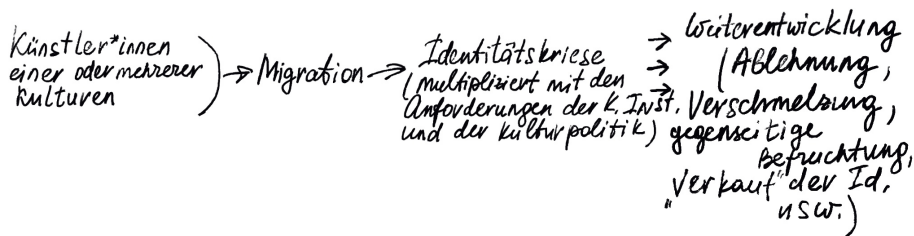 Künstler*innen
einer oder mehrerer
Kulturen
→ Migration →
Identitätskriese
(multipliziert mit den
Anforderungen der K. Inst.
und der Kulturpolitik)
→ Weiterentwicklung
→ (Ablehnung,
→ Verschmelzung,
gegenseitige
Befruchtung,
"Verkauf" der Id.
usw.)